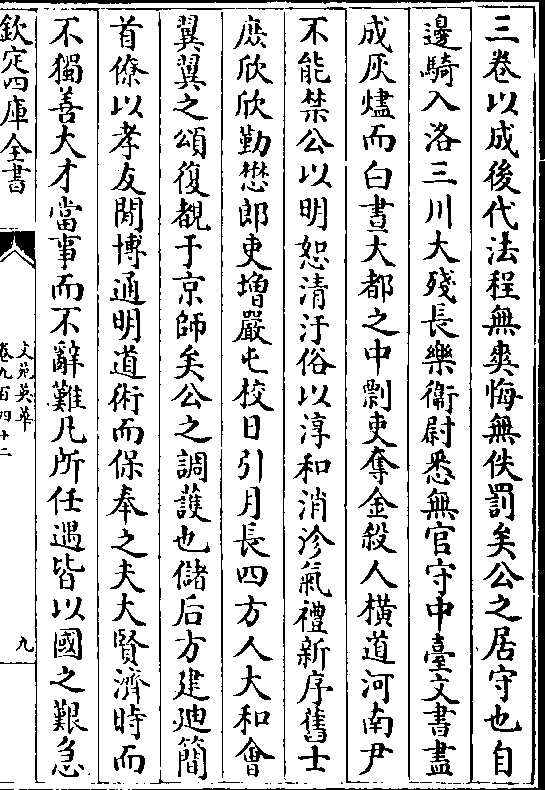 三卷以成後代法程無爽悔無佚罰矣公之居守也自
邊騎入洛三川大殘長樂衞尉悉無官守中臺文書盡
成灰燼而白晝大都之中剽吏奪金殺人橫道河南尹
不能禁公以明恕清汙俗以淳和消沴氣禮新序舊士
庶欣欣勤懋郎吏増嚴屯校日引月長四方人大和會
翼翼之頌復覩于京師矣公之調䕶也儲后方建廸簡
首僚以孝友聞博通明道術而保奉之夫大賢濟時而
不獨善大才當事而不辭難凡所任遇皆以國之艱急
欽定四庫全書
文苑英華
卷九百四十二
九